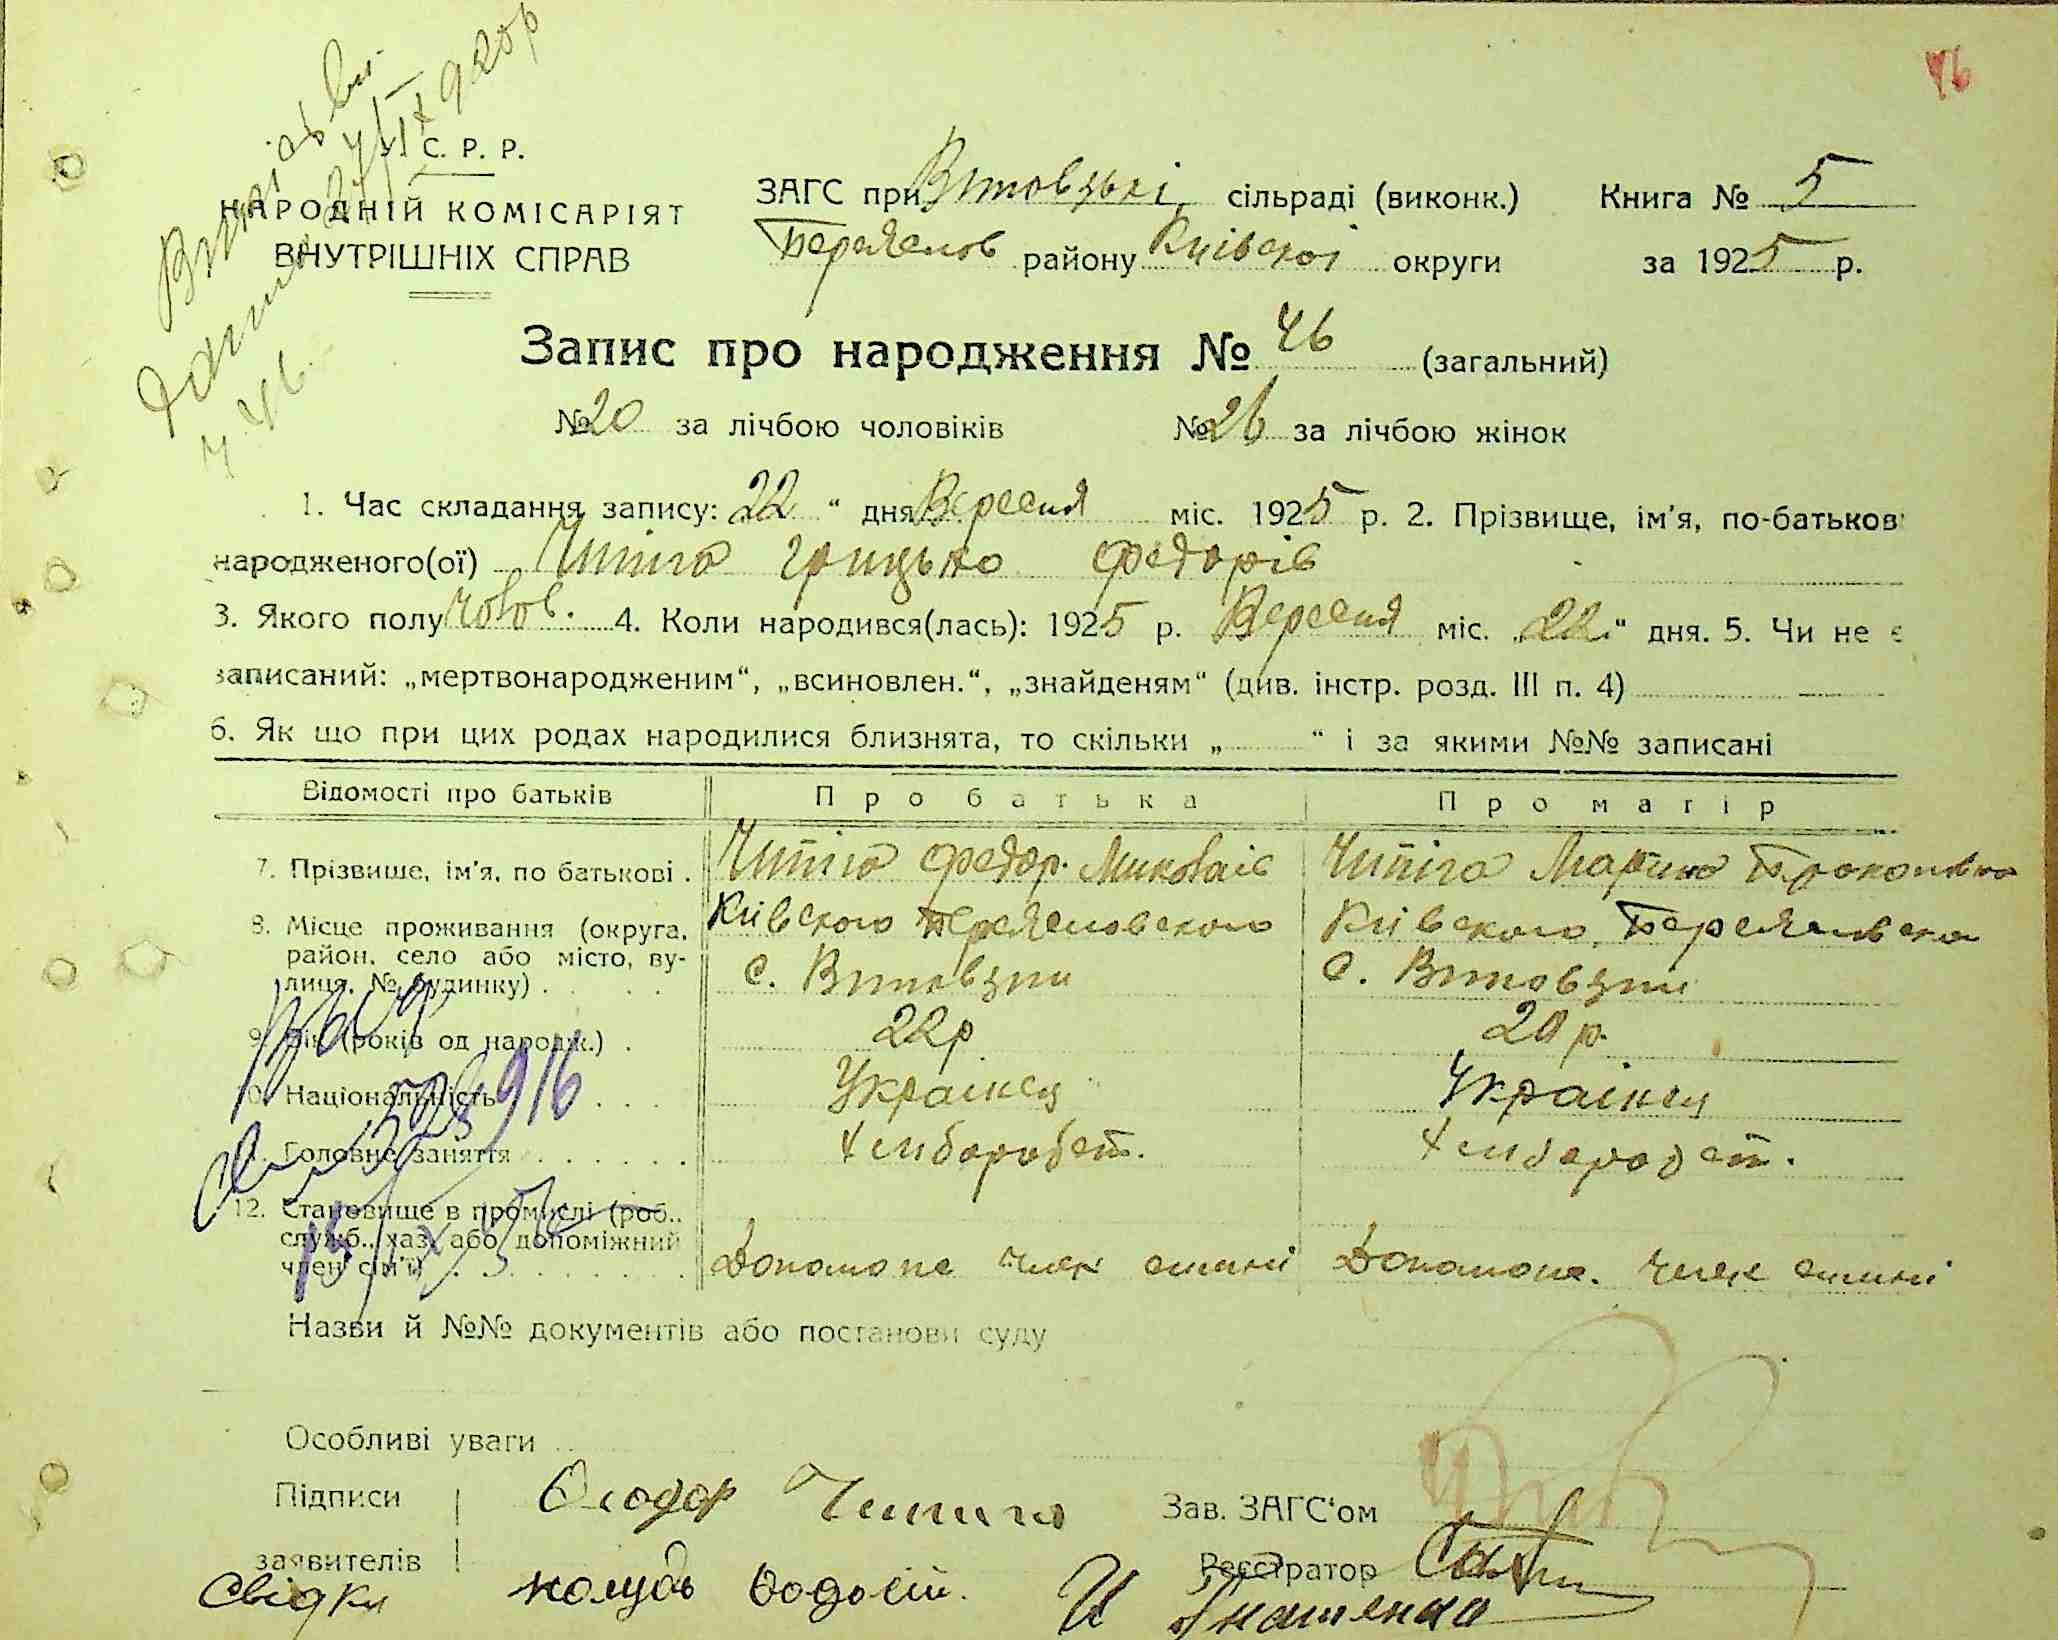 46
У. С. Р. Р.
НАРОДНІЙ КОМІСАРІЯТ
ВНУТРІШНІХ СПРАВ
ЗАГС при Витовцькі сільраді (виконк.) Книга № 5
Переяслов району Київскоі округи за 1925 р.
Запис про народження № 46 (загальний)
№ 20 за лічбою чоловіків № 26 за лічбою жінок
1. Час складання запису: 22 “ дня Вересня міс. 1925 р. 2. Прізвище, ім'я, по-батькові
народженого(ої) Чипіга Грицько Федорів
3. Якого полу чолов. 4. Коли народився(лась): 1925 р. Вересня міс. „22“ дня. 5. Чи не є
записаний: „мертвонародженим“, „всиновлен.“, „знайденям“ (див. інстр. розд. III п. 4)
6. Як що при цих родах народилися близнята, то скільки „ “ і за якими №№ записані
Відомості про батьків Про батька Про матір
7. Прізвише, ім'я, по батькові . Чипіга Федор. Миколаів Чипіга Марина Прокоповна
8. Місце проживання (округа, Київского Переясловского Київского Переяславского
район, село або місто, ву-
лиця, № будинку) . с. Витовцпи с. Витовцпи
9. Вік (років од народж.) . 22 р 20 р.
10. Національність Українец Українец
11. Головне заняття Хлибороб Хлибороб
12. Становище в промислі (роб.,
служб., хаз. або допоміжний
член сім'ї) Допомопе член симні Допомопе. член симні
Назви й №№ документів або постанови суду
Особливі уваги
Підписи Феодор Чипига Зав. ЗАГС'ом
заявителів Реєстратор
Свідки Колуб И Гнатенко